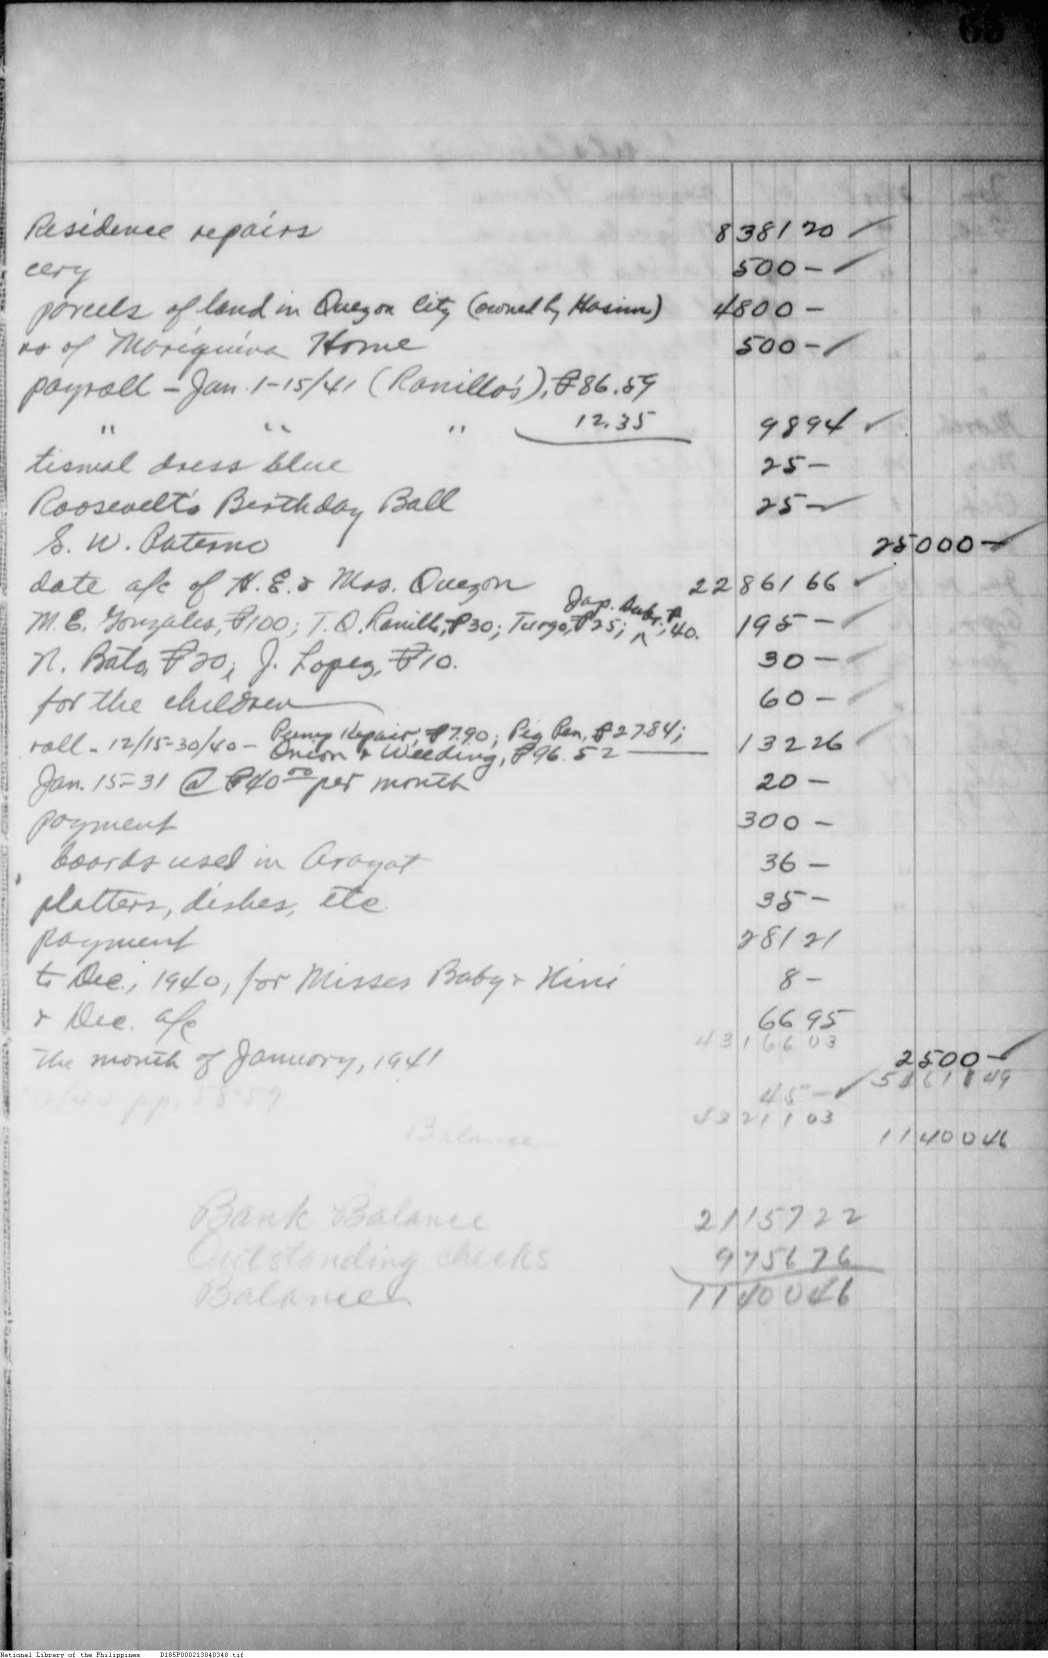 65
Residence repairs 8381 20 ✓
cery 500 - ✓
parcels of land in Quezon City (owned by Hasim) 4800 -
rs of Mariquina Home 500 - ✓
payroll - Jan. 1-15/41 (Ranillo's), ₱86.59
" " " 12.35 98 94 ✓
tismal dress blue 25 -
Roosevelt's Birthday Ball 25 - ✓
S. W. Paterno 25000 - ✓
date a/c of H.E. & Mrs. Quezon 22861 66 ✓
M.E. Gonzales, ₱100; T.O. Ranillo, ₱30; Turgo, ₱25; Jap. Subs. ₱40. 195 - ✓
N. Bato, ₱20; J. Lopez, ₱10. 30 - ✓
for the children 60 - ✓
roll - 12/15-30/40 - Pump Repair, ₱7.90; Pig Pen, ₱27.84;
Onion & Weeding, ₱96.52 132 26 ✓
Jan. 15-31 @ ₱40 00 per month 20 -
payment 300 -
boards used in Arayat 36 -
platters, dishes, etc. 35 -
payment 281 21
to Dec., 1940, for Misses Baby & Nini 8 -
& Dec. a/c 66 95
43166 03
the month of January, 1941 2500 - ✓
51611 49
pp. 58-59 45 - ✓
43211 03
Balance 11400 46
Bank Balance 21157 22
Outstanding checks 9756 76
Balance 11400 46
National Library of the Philippines D185P000213040348.tif